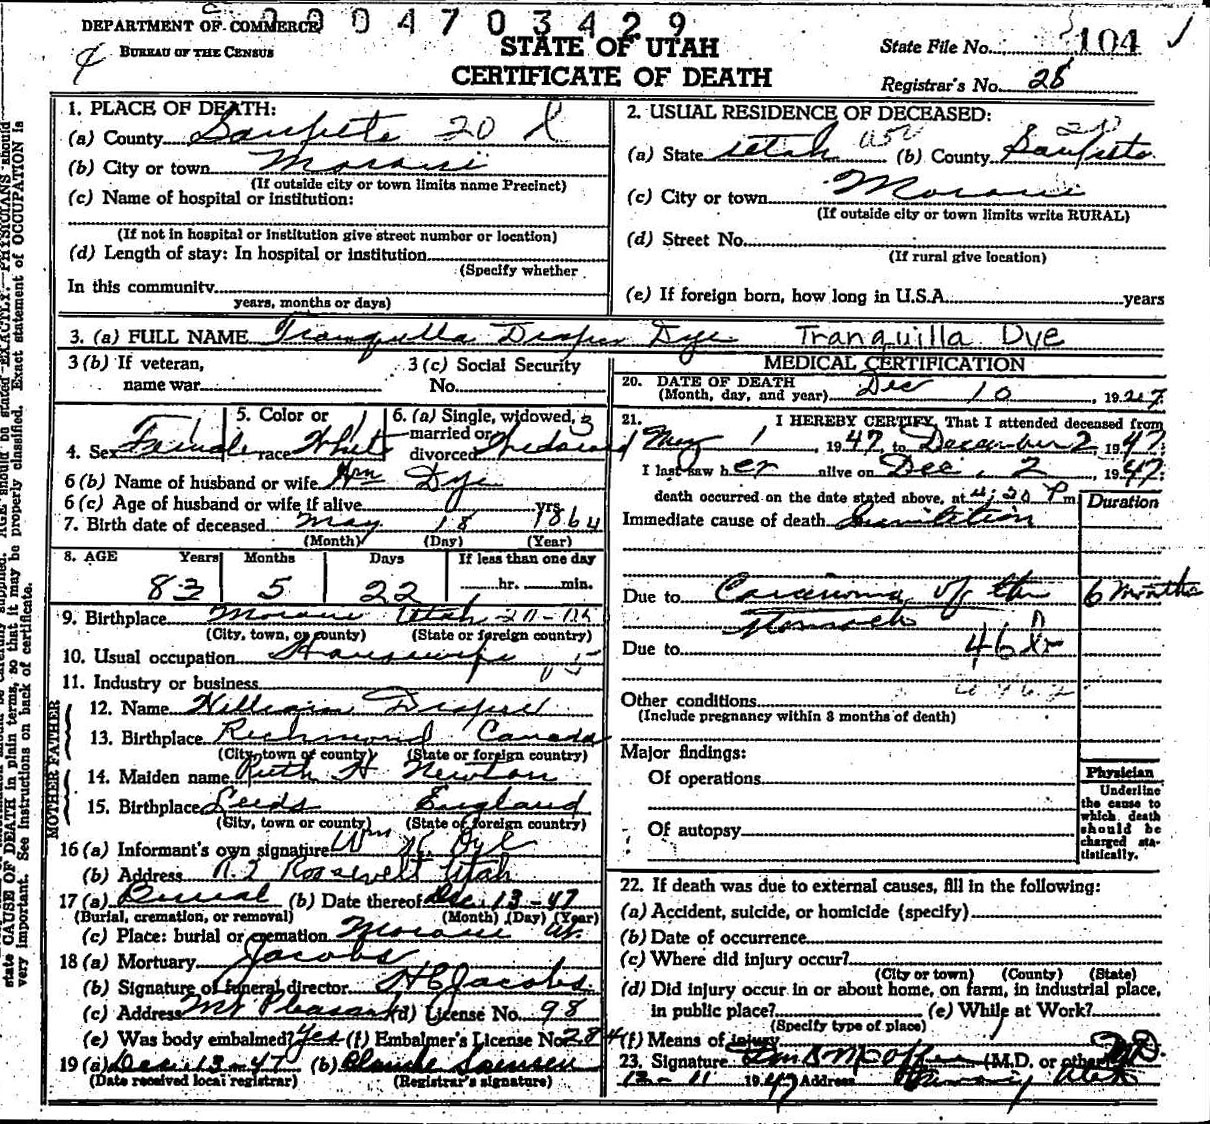 0004703429
DEPARTMENT OF COMMERCE
BUREAU OF THE CENSUS
STATE OF UTAH
CERTIFICATE OF DEATH
State File No. 104
Registrar's No. 28
1. PLACE OF DEATH:
(a) County Sanpete 20
(b) City or town Moroni
(If outside city or town limits name Precinct)
(c) Name of hospital or institution:
(If not in hospital or institution give street number or location)
(d) Length of stay: In hospital or institution
(Specify whether
In this community
years, months or days)
2. USUAL RESIDENCE OF DECEASED:
(a) State Utah (b) County Sanpete 20
(c) City or town Moroni
(If outside city or town limits write RURAL)
(d) Street No.
(If rural give location)
(e) If foreign born, how long in U.S.A. years
3. (a) FULL NAME Tranquilla Draper Dye Tranquilla Dye
3 (b) If veteran, name war
3 (c) Social Security No.
4. Sex Female
5. Color or race White
6. (a) Single, widowed, married or divorced Widowed 3
6 (b) Name of husband or wife Wm Dye
6 (c) Age of husband or wife if alive yrs.
7. Birth date of deceased May 18 1864
(Month) (Day) (Year)
8. AGE Years Months Days If less than one day
83 5 22 hr. min.
9. Birthplace Moroni Utah
(City, town, or county) (State or foreign country)
10. Usual occupation Housewife
11. Industry or business
FATHER
12. Name William Draper
13. Birthplace Richmond Canada
(City, town or county) (State or foreign country)
MOTHER
14. Maiden name Ruth H Newton
15. Birthplace Leeds England
(City, town or county) (State of foreign country)
16 (a) Informant's own signature Wm H. Dye
(b) Address R. 2 Roosevelt Utah
17 (a) Burial (b) Date thereof Dec. 13-47
(Burial, cremation, or removal) (Month) (Day) (Year)
(c) Place: burial or cremation Moroni Ut.
18 (a) Mortuary Jacobs
(b) Signature of funeral director H C Jacobs
(c) Address Mt Pleasant (d) License No. 98
(e) Was body embalmed? Yes (f) Embalmer's License No. 284
19 (a) Dec. 13-47 (b) Claude Sorensen
(Date received local registrar) (Registrar's signature)
MEDICAL CERTIFICATION
20. DATE OF DEATH
(Month, day, and year) Dec 10, 1947
21. I HEREBY CERTIFY, That I attended deceased from
May 1, 1947, to December 2 1947.
I last saw her alive on Dec. 2 1947.
death occurred on the date stated above, at 4:20 Pm
Duration
Immediate cause of death Inanition
Due to Carcinoma of the stomach 6 months
Due to 46 b
Other conditions
(Include pregnancy within 3 months of death)
Major findings:
Of operations
Of autopsy
Physician
Underline the cause to which death should be charged statistically.
22. If death was due to external causes, fill in the following:
(a) Accident, suicide, or homicide (specify)
(b) Date of occurrence
(c) Where did injury occur?
(City or town) (County) (State)
(d) Did injury occur in or about home, on farm, in industrial place, in public place? (e) While at Work?
(Specify type of place)
(f) Means of injury
23. Signature (M.D. or other) M.D.
12-11 1947 Address Utah
state CAUSE OF DEATH in plain terms, so that it may be properly classified. Exact statement of OCCUPATION is
very important. See instructions on back of certificate.